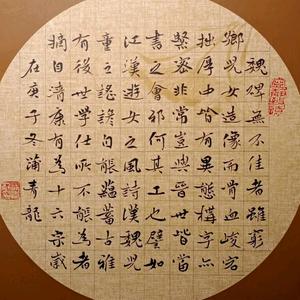 魏碑無不佳者雖窮
鄉兒女造像而骨血峻宕
拙厚中皆有異態構字亦
緊密非常豈與晉世皆當
書之會邪何其工也譬如
江漢遊女之風詩漢魏兒
童之謠諺自能蘊蓄古雅
有後世學仕所不能為者
摘自清康有為十六宗歲
在庚子冬蒲青龍